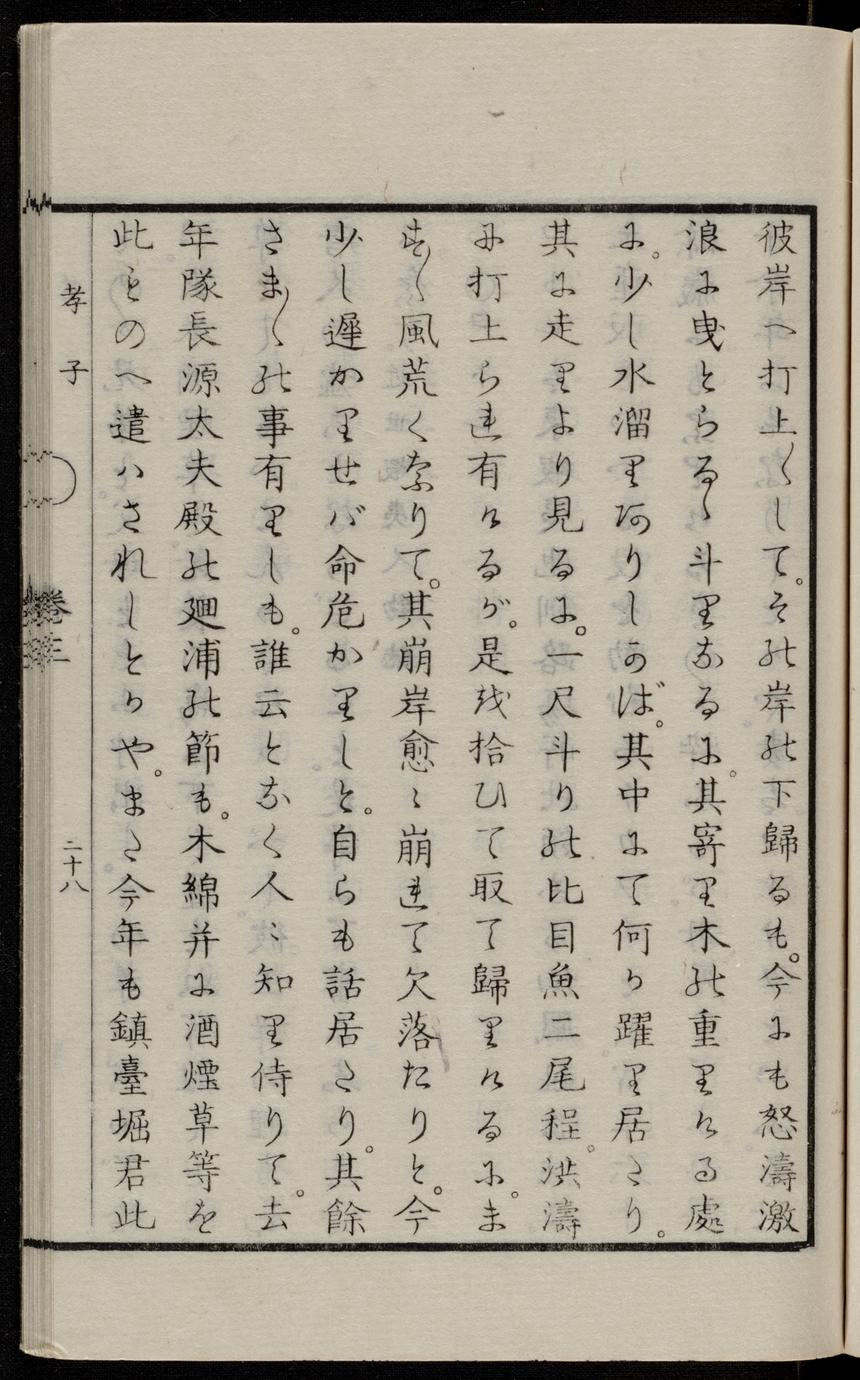 彼岸へ打上〱して。その岸の下歸るも。今にも怒濤激
浪に曳とらるゝ斗りなるに。其寄り木の重りける處
に。少し水溜り有りしかば。其中にて何か躍り居たり。
其に走りより見るに。一尺斗りの比目魚二尾程。洪濤
に打上られ有けるが。是を拾ひて取て歸りけるに。ま
す〱風荒くなりて。其崩岸愈〻崩れて欠落たりと。今
少し遲かりせバ命危かりしと。自らも話居たり。其餘
さま〲の事有りしも。誰云となく人〻知り侍りて。去
年隊長源太夫殿の廻浦の節も。木綿并に酒煙草等を
此ものへ遣ハされしとかや。また今年も鎮臺堀君此
孝子
卷三
二十八